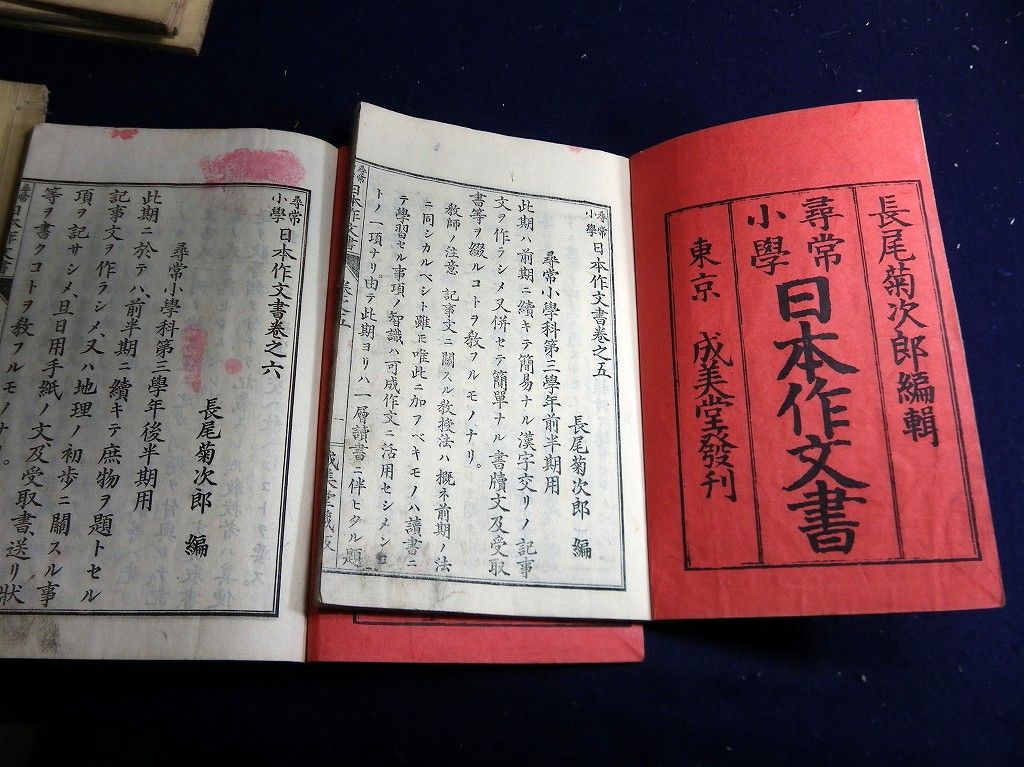 長尾菊次郎編輯
尋常小學 日本作文書
東京 成美堂發刊
尋常小學 日本作文書卷之五
長尾菊次郎 編
尋常小學科第三學年前半期用
此期ハ前期ニ續キテ簡易ナル漢字交リノ記事
文ヲ作ラシメ又併セテ簡單ナル書牘文及受取
書等ヲ綴ルコトヲ敎フルモノナリ。
敎師ノ注意 記事文ニ關スル敎授法ハ概ネ前期ノ法
ニ同シカルベシト雖モ唯此ニ加フベキモノハ讀書ニ
テ學習セル事項ノ智識ハ可成作文ニ活用セシメンコ
トノ一項ナリ。由テ此期ヨリハ一層讀書ニ伴ヒタル題
尋常小學 日本作文書 卷之五 成美堂藏版
尋常小學 日本作文書卷之六
長尾菊次郎 編
尋常小學科第三學年後半期用
此期ニ於テハ、前半期ニ續キテ庶物ヲ題トセル
記事文ヲ作ラシメ、又ハ地理ノ初歩ニ關スル事
項ヲ記サシメ、且日用手紙ノ文及受取書、送リ狀
等ヲ書クコトヲ敎フルモノナリ。
尋常小學 日本作文書